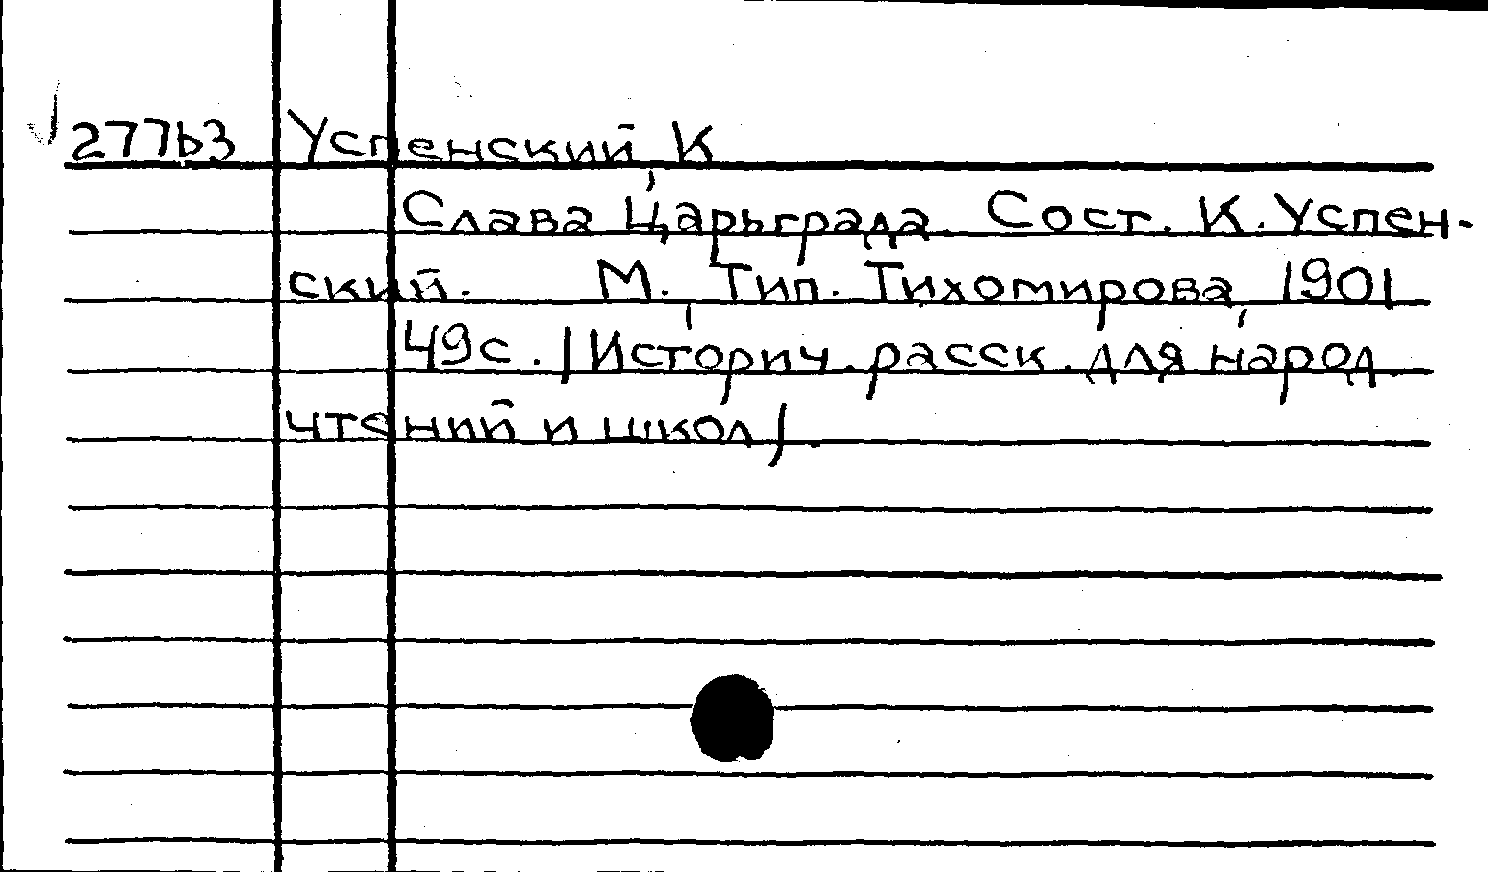 277b3 Успенский, К
Слава Царьграда. Сост. К. Успен-
ский. М. Тип. Тихомирова, 1901
49с. /Историч. расск. для народ.
чтений и школ/.